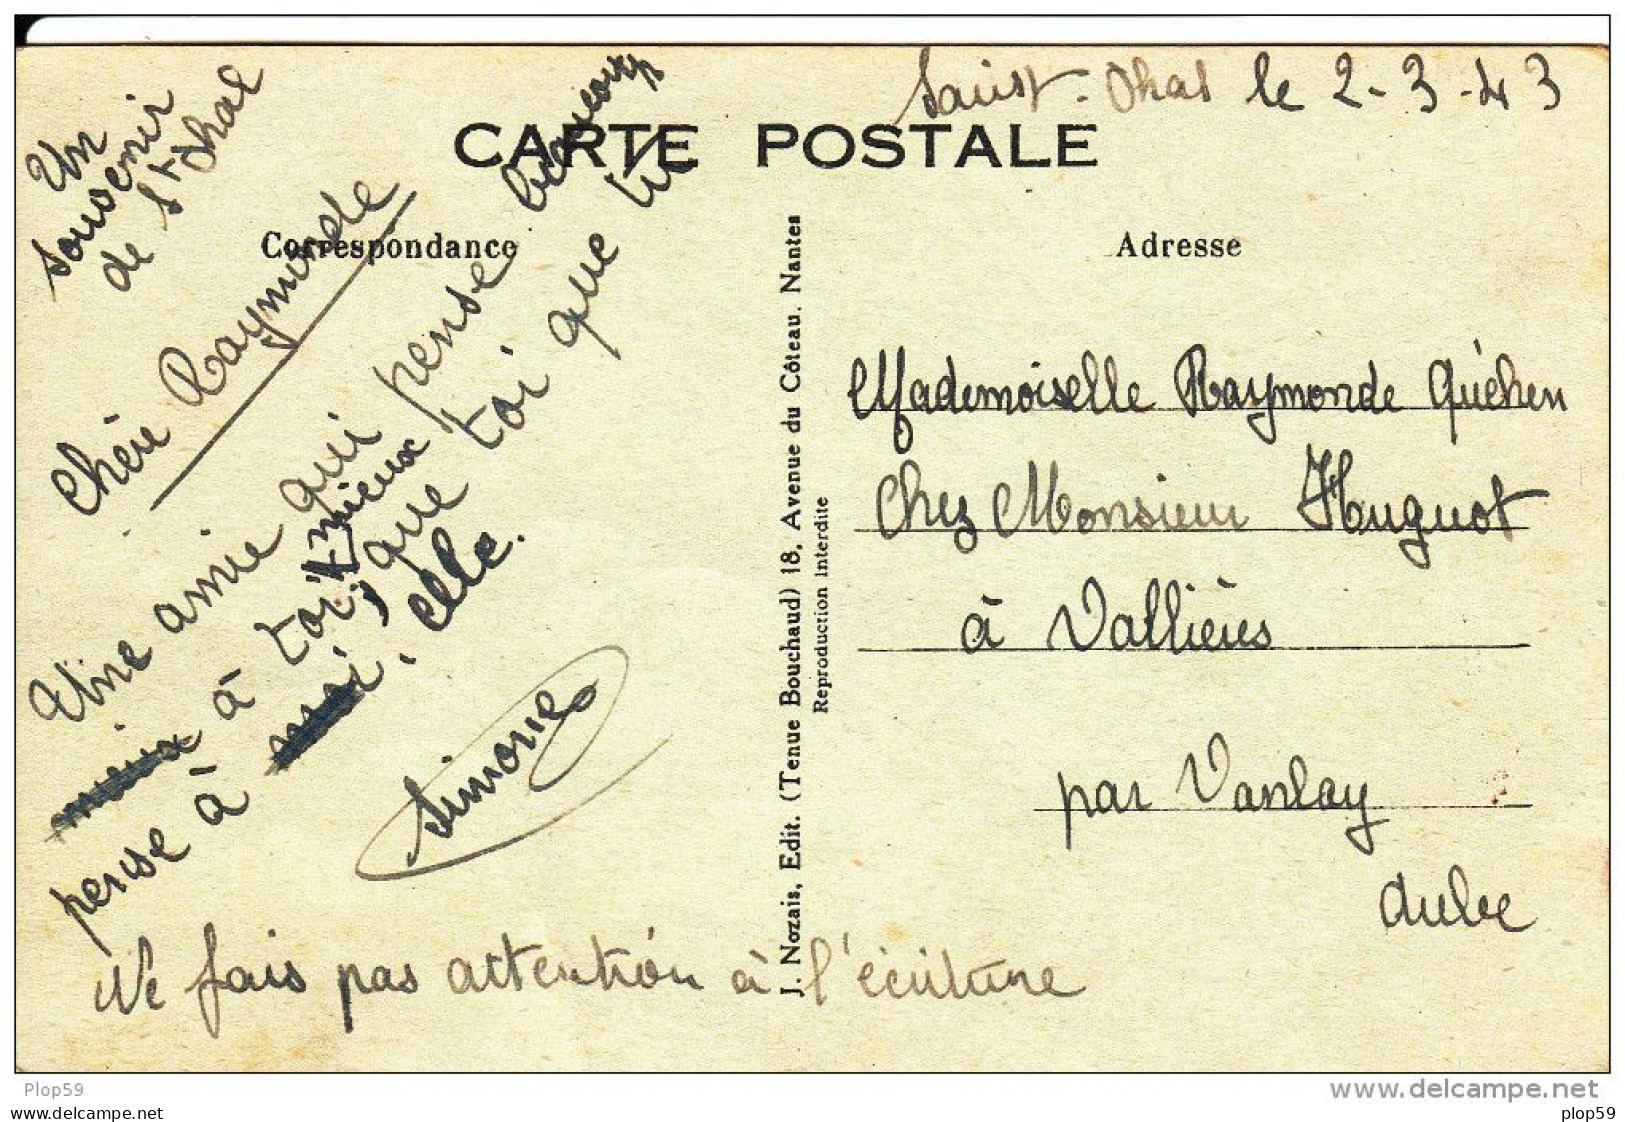 Saint-Phal le 2-3-43
CARTE POSTALE
Un
souvenir
de St Phal
Correspondance
Adresse
Chère Raymonde
Une amie qui pense beaucoup
à toi mieux que toi que tu
pense à , que
elle.
Simone
Ne fais pas attention à l'écriture
J. Nozais, Edit. (Tenue Bouchaud) 18, Avenue du Côteau. Nantes
Reproduction Interdite
Mademoiselle Raymonde Quéhen
Chez Monsieur Huguot
à Vallières
par Vanlay
Aube
Plop59
www.delcampe.net
www.delcampe.net
plop59